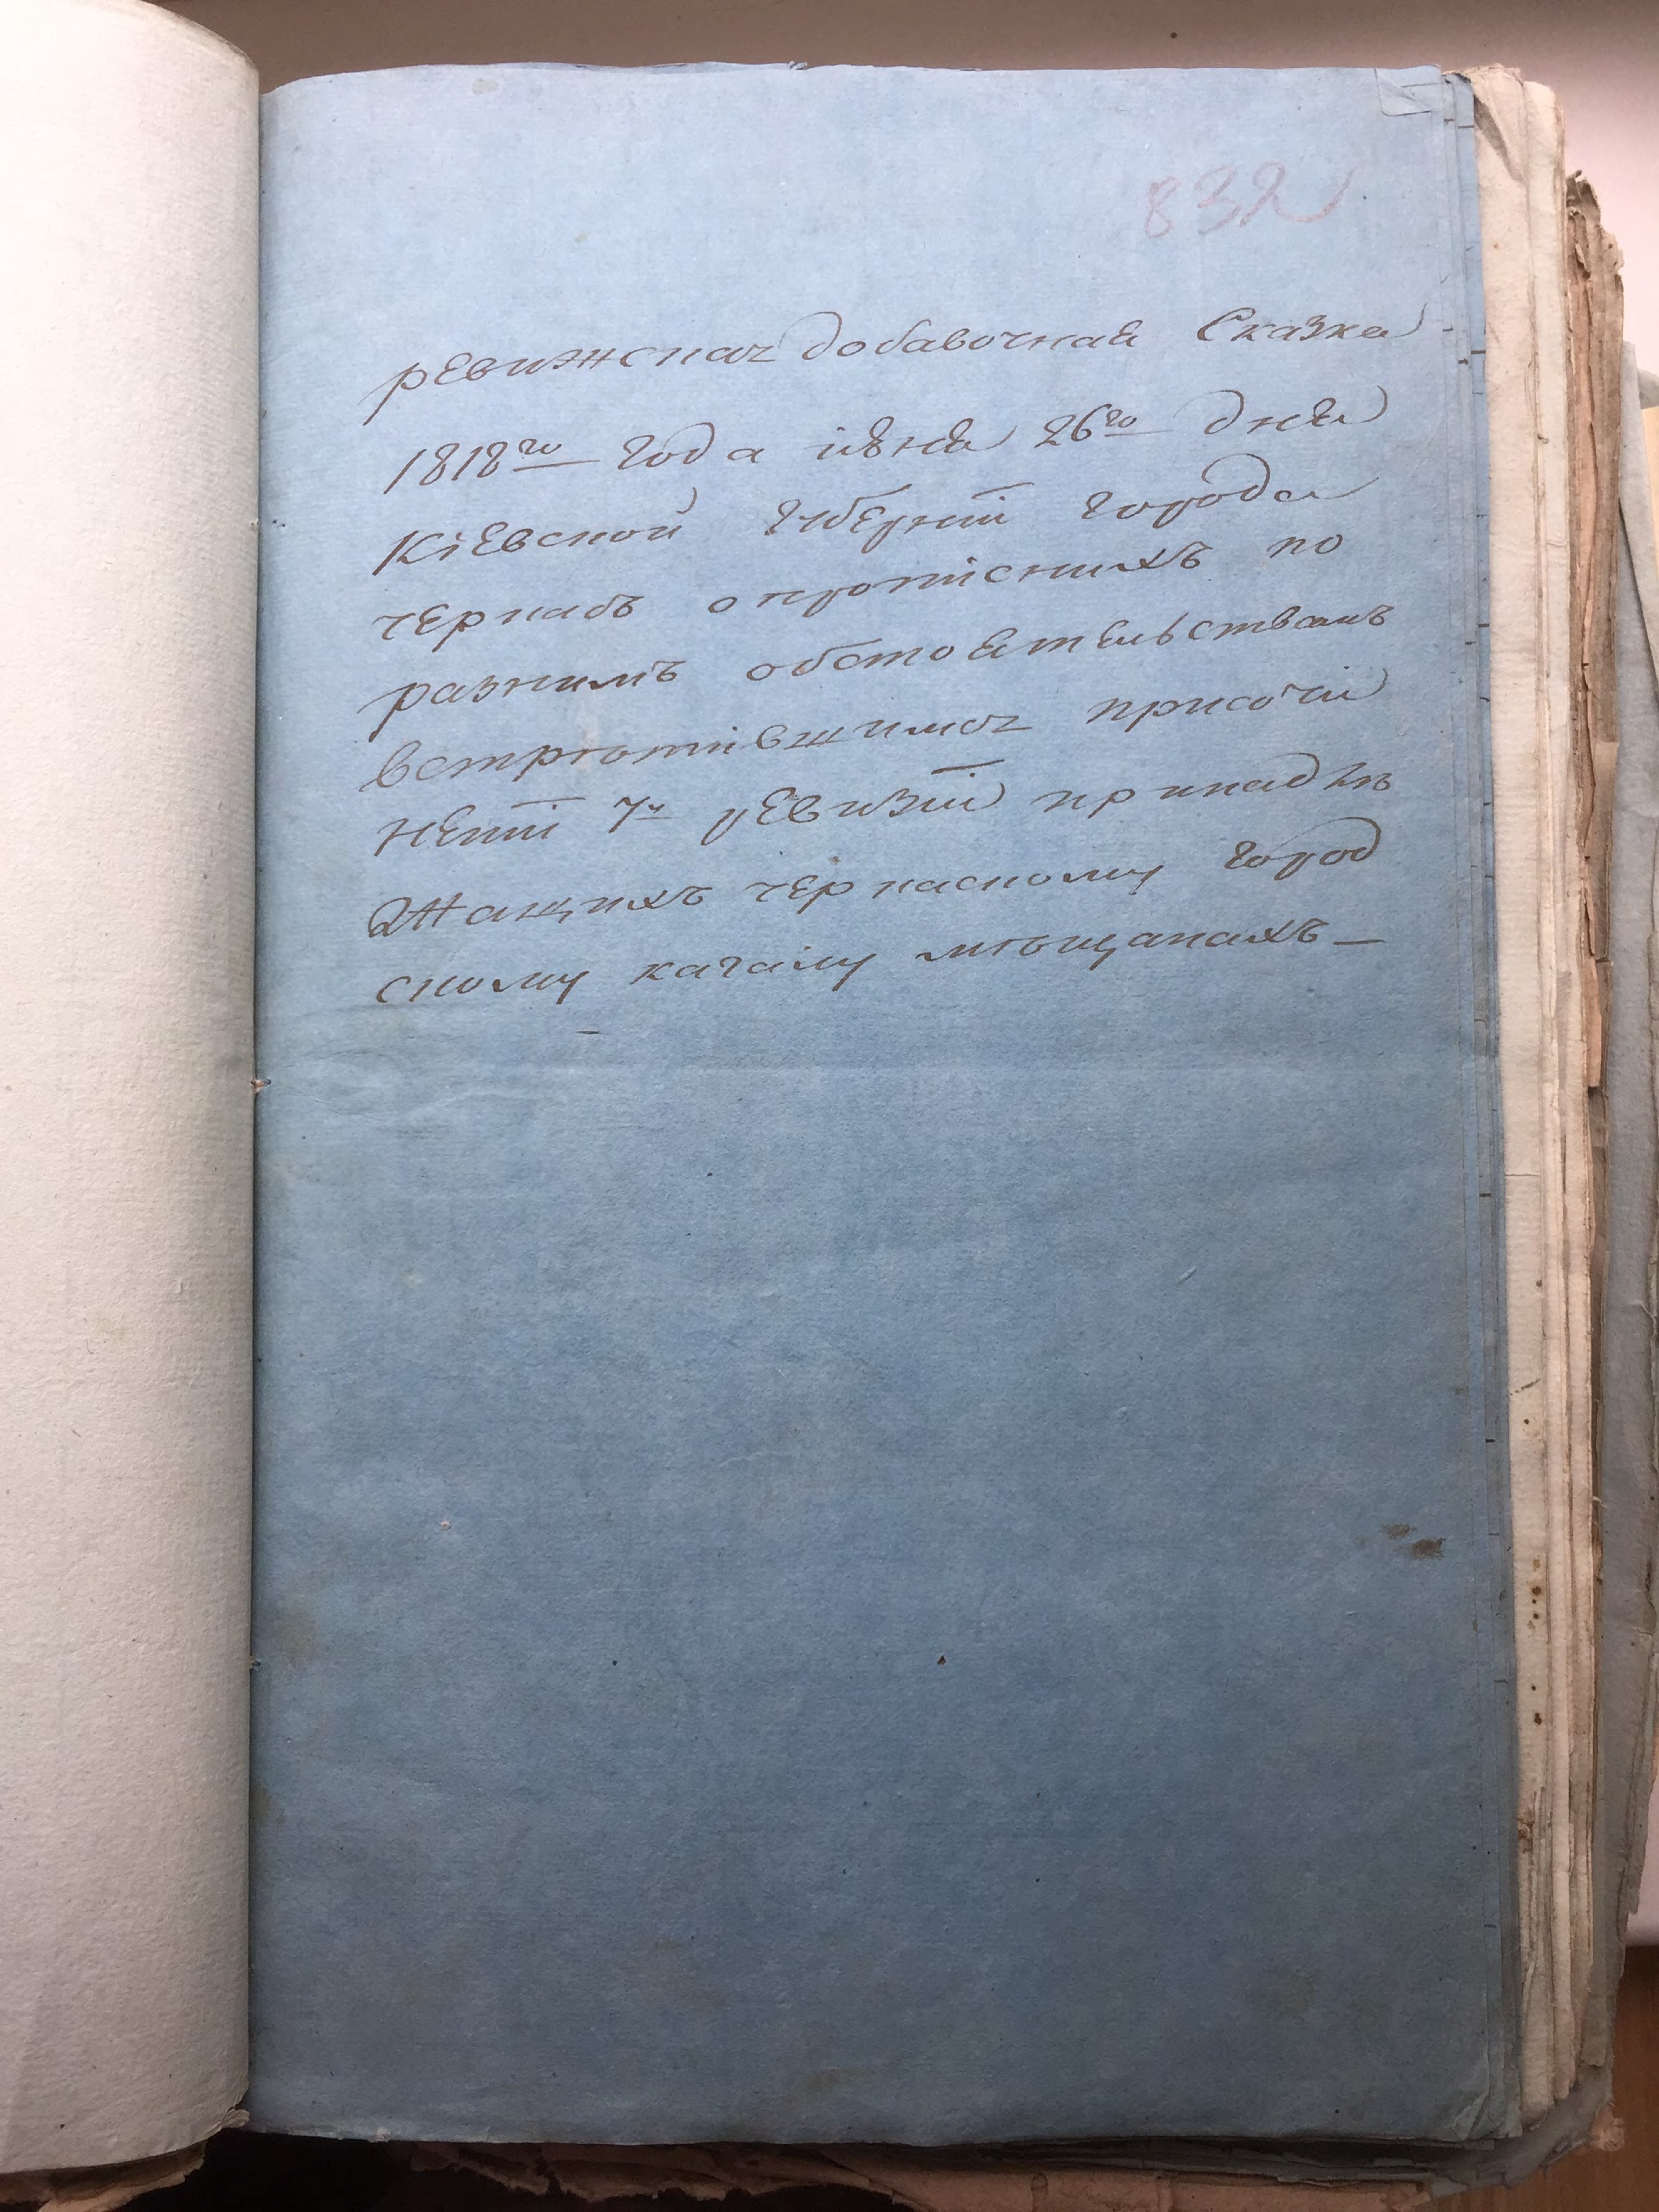 832
ревижская добавочная Сказка
1818го года июня 26го дня
Кіевской Губерніи города
черкасъ о пропісныхъ по
разнымъ обстоятельствамъ
встретившимся при сочи
неніи 7й ревизіи принадле
жащихъ черкаскому город
скому кагалу мѣщанахъ —